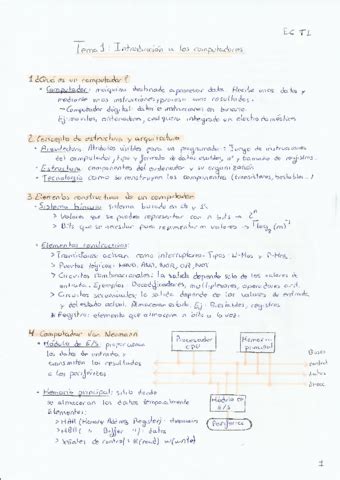 EC T1
Tema 1: Introducción a los computadores
1. ¿Qué es un computador?
• Computador: máquina destinada a procesar datos. Recibe unos datos y
mediante unas instrucciones, proveen unos resultados.
↳ Computador digital: datos e instrucciones en binario.
Ej: móviles, ordenadores, cualquier integrado en electrodoméstico
2. Concepto de estructura y arquitectura
• Arquitectura: Atributos visibles para un programador: Juego de instrucciones
del computador, tipo y formato de datos usables, nº y tamaño de registros.
• Estructura: componentes del ordenador y su organización
• Tecnología: como se construyen los componentes (transistores, ...)
3. Elementos constructivos de un computador
• Sistema binario: sistema basado en 0s y 1s.
> Valores que se pueden representar con n bits → 2ⁿ
> Bits que se necesitan para representar m valores → ⌈log₂(m)⌉
• Elementos constructivos:
> Transistores: actúan como interruptores. Tipos: N-Mos y P-Mos.
> Puertas lógicas: NAND, AND, NOR, OR, NOT
> Circuitos combinacionales: la salida depende solo de los valores de
entrada. Ejemplos: Decodificadores, multiplexores, operadores arit.
> Circuitos secuenciales: la salida depende de los valores de entrada
y del estado actual. Almacenan estado. Ej: Biestables, registros
Registro: elemento que almacena n bits a la vez.
4. Computador Von Neumann
• Módulo de E/S: proporcionan
los datos de entrada y
transmiten los resultados
a los periféricos
• Memoria principal: sitio donde
se almacenan los datos temporalmente
Elementos:
> MAR (Memory Address Register): dirección
> MBR ( " Buffer " ): datos
> Señales de control: R(read) W(write)
Procesador
CPU
Memoria
principal
Buses
control
datos
direcc
Módulo de
E/S
Periféricos
1